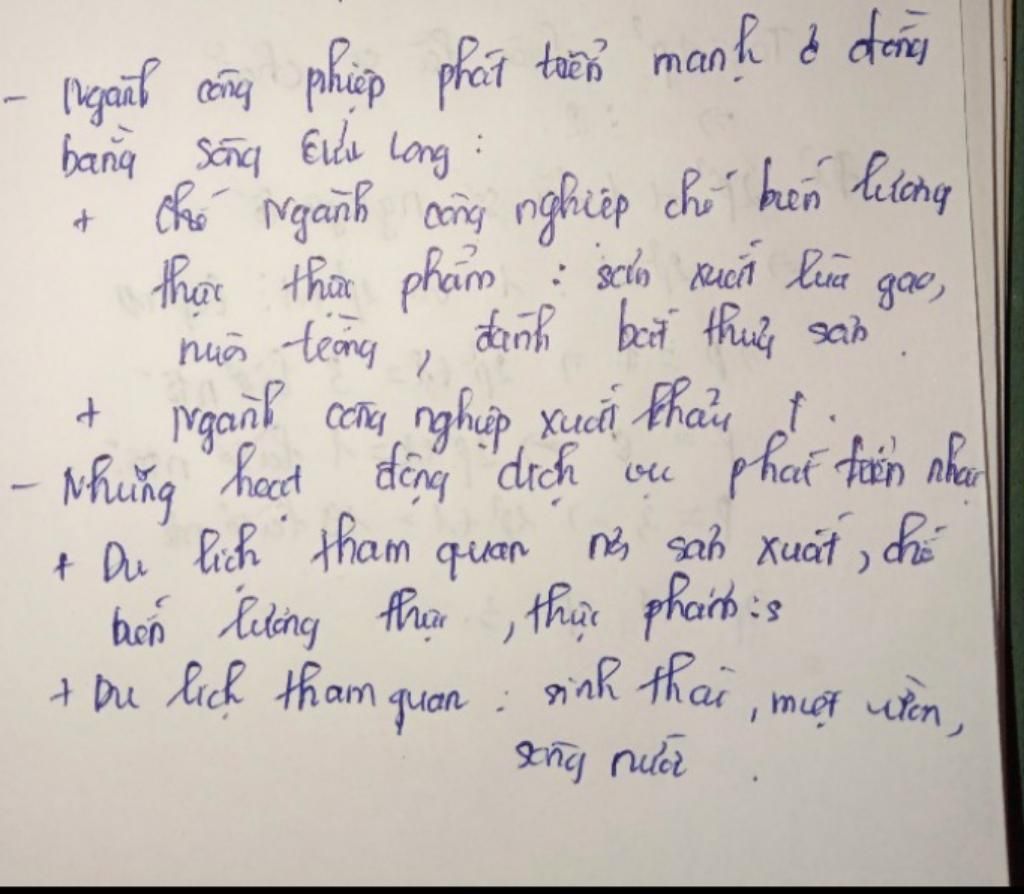 - Ngành công phiệp phát triển mạnh ở đồng
bằng sông Cửu Long :
+ Chế Ngành công nghiệp chế biến lương
thực thực phẩm : sản xuất lúa gạo,
nuôi trồng, đánh bắt thuỷ sản.
+ Ngành công nghiệp xuất khẩu
- Những hoạt động dịch vụ phát triển
+ Du lịch tham quan nơi sản xuất, chế
biến lương thực, thực phẩm :
+ Du lịch tham quan : sinh thái, miệt vườn,
sông nước.